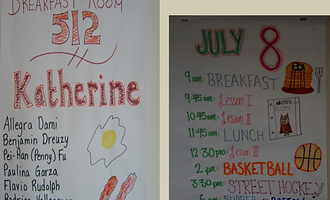 BREAKFAST ROOM
512
Katherine
Allegra Dami
Benjamin Dreuzy
Pei-Han (Penny) Fu
Paulina Garza
Flavio Rudolph
JULY 8
9 am BREAKFAST
9:45 am Lesson I
10:45 am Lesson II
11:45 am LUNCH
12:30 pm Lesson III
2 pm BASKETBALL
3:30 pm STREET HOCKEY
NOTES